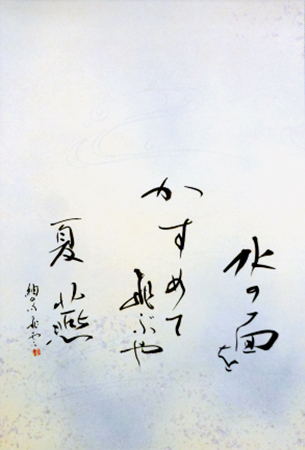 水の面を
かすめて
飛ぶや
夏燕